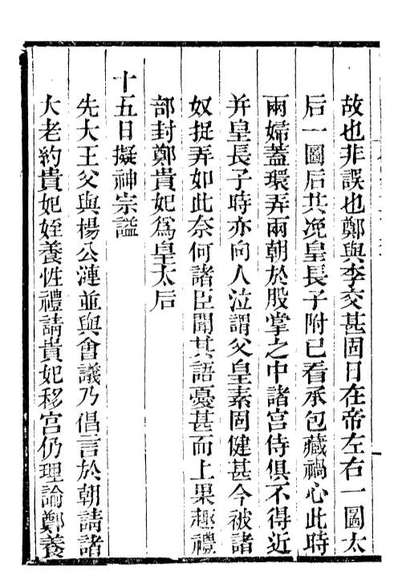 故也非誤也鄭與李交甚固日在帝左右一圖太
后一圖后共挽皇長子附已看承包藏禍心此時
兩婦蓋環弄兩朝於股掌之中諸宮侍俱不得近
并皇長子時亦向人泣謂父皇素固健甚今被諸
奴捉弄如此奈何諸臣聞其語憂甚而上果趣禮
部封鄭貴妃爲皇太后
十五日擬神宗謚
先大王父與楊公漣並與會議乃倡言於朝請諸
大老約貴妃姪養性禮請貴妃移宮仍理諭鄭養